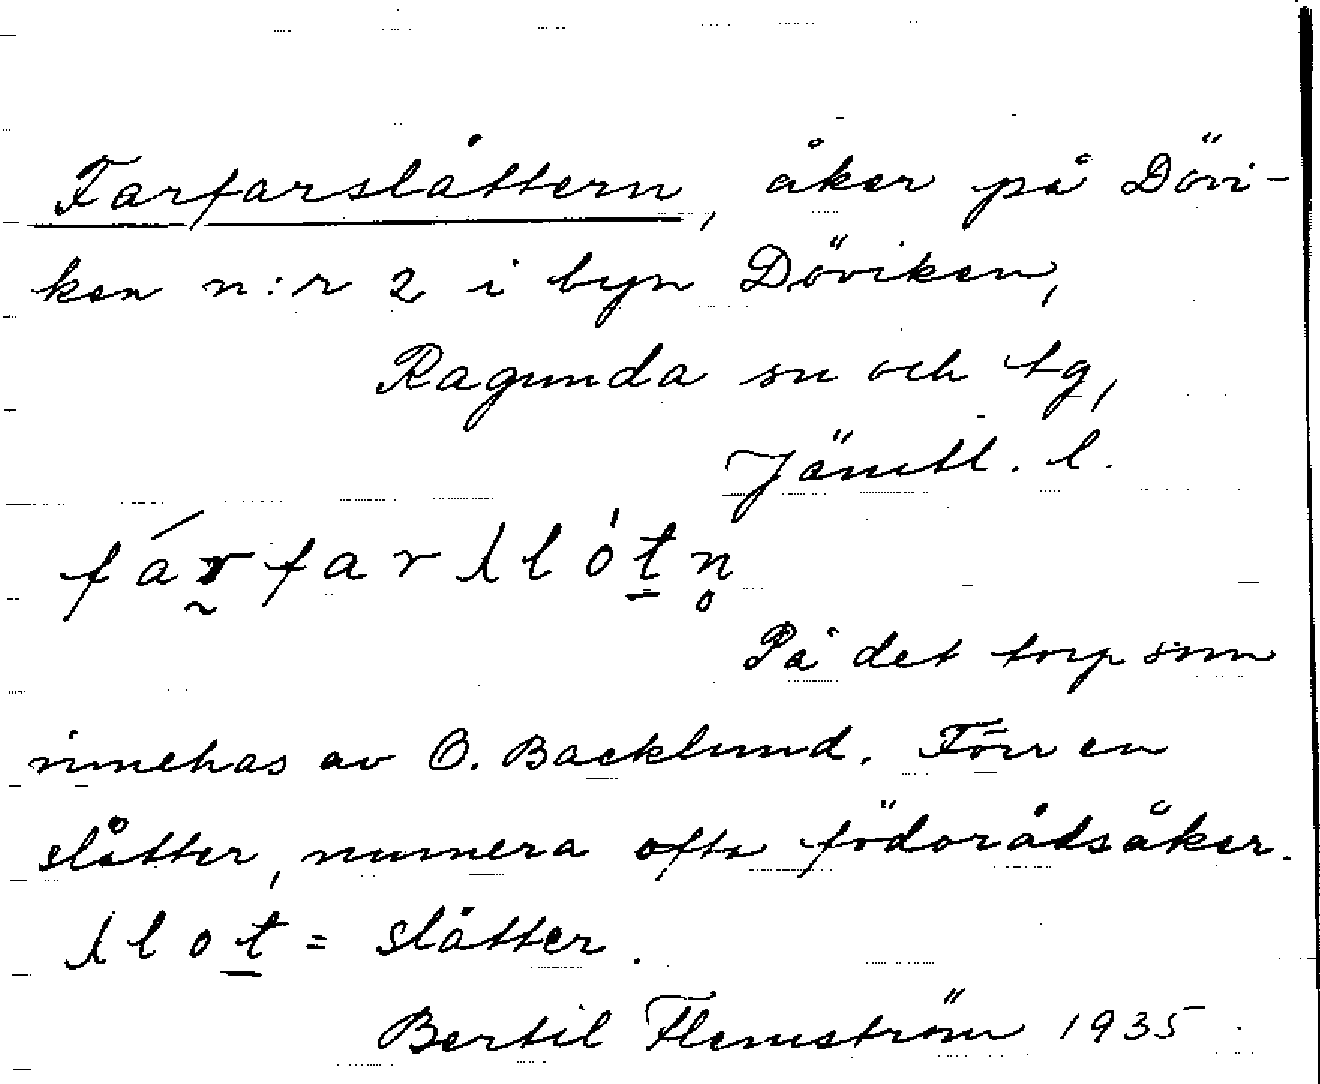 Farfarslåttern, åker på Dövi-
ken n:r 2 i byn Döviken,
Ragunda sn och tg,
Jämtl. l.
fárfarʎlótn̥
På det torp som
innehas av O. Backlund. Förr en
slåtter, numera ofta födorådsåker.
ʎlot = slåtter.
Bertil Flemström 1935